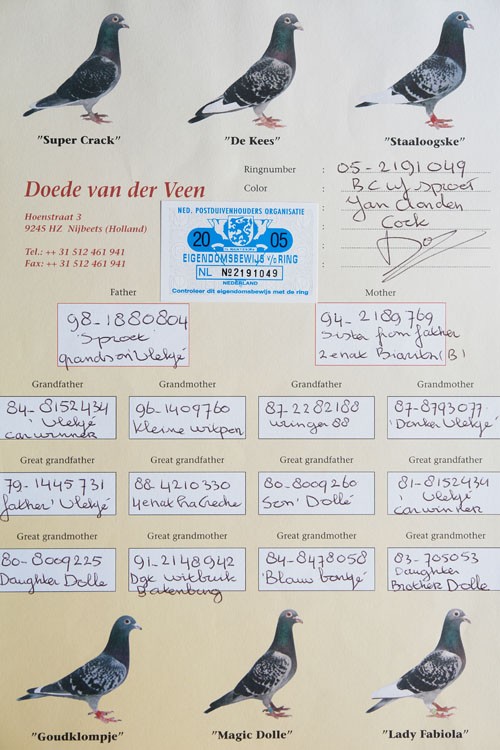 "Super Crack"
"De Kees"
"Staaloogske"
Doede van der Veen
Hoenstraat 3
9245 HZ Nijbeets (Holland)
Tel.: ++ 31 512 461 941
Fax: ++ 31 512 461 941
Ringnumber : 05-2191049
Color : BCW sproet
: Jan Aonden
: Cock
NED. POSTDUIVENHOUDERS ORGANISATIE
20 05
EIGENDOMSBEWIJS v/d RING
NL No2191049
NEDERLAND
Controleer dit eigendomsbewijs met de ring
Father
98-1880804
'Sproet
grandson Vlekje'
Mother
94-2189769
Sister from father
2e nat (B)
Grandfather
84-8152434
'Vlekje'
carwinner
Grandmother
96-1409760
Kleine witpen
Grandfather
87-2282188
Wringer 88
Grandmother
87-8793077
'Donker Vlekje'
Great grandfather
79-1445731
father 'Vlekje'
Great grandfather
88-4210330
4e nat
Great grandfather
80-8009260
Son 'Dolle'
Great grandfather
81-8152434
'Vlekje'
carwinner
Great grandmother
80-8009225
Daughter Dolle
Great grandmother
91-2148942
Dgt witbuik
Batenburg
Great grandmother
84-8478058
'Blauw bontje'
Great grandmother
83-705053
Daughter
Brother Dolle
"Goudklompje"
"Magic Dolle"
"Lady Fabiola"